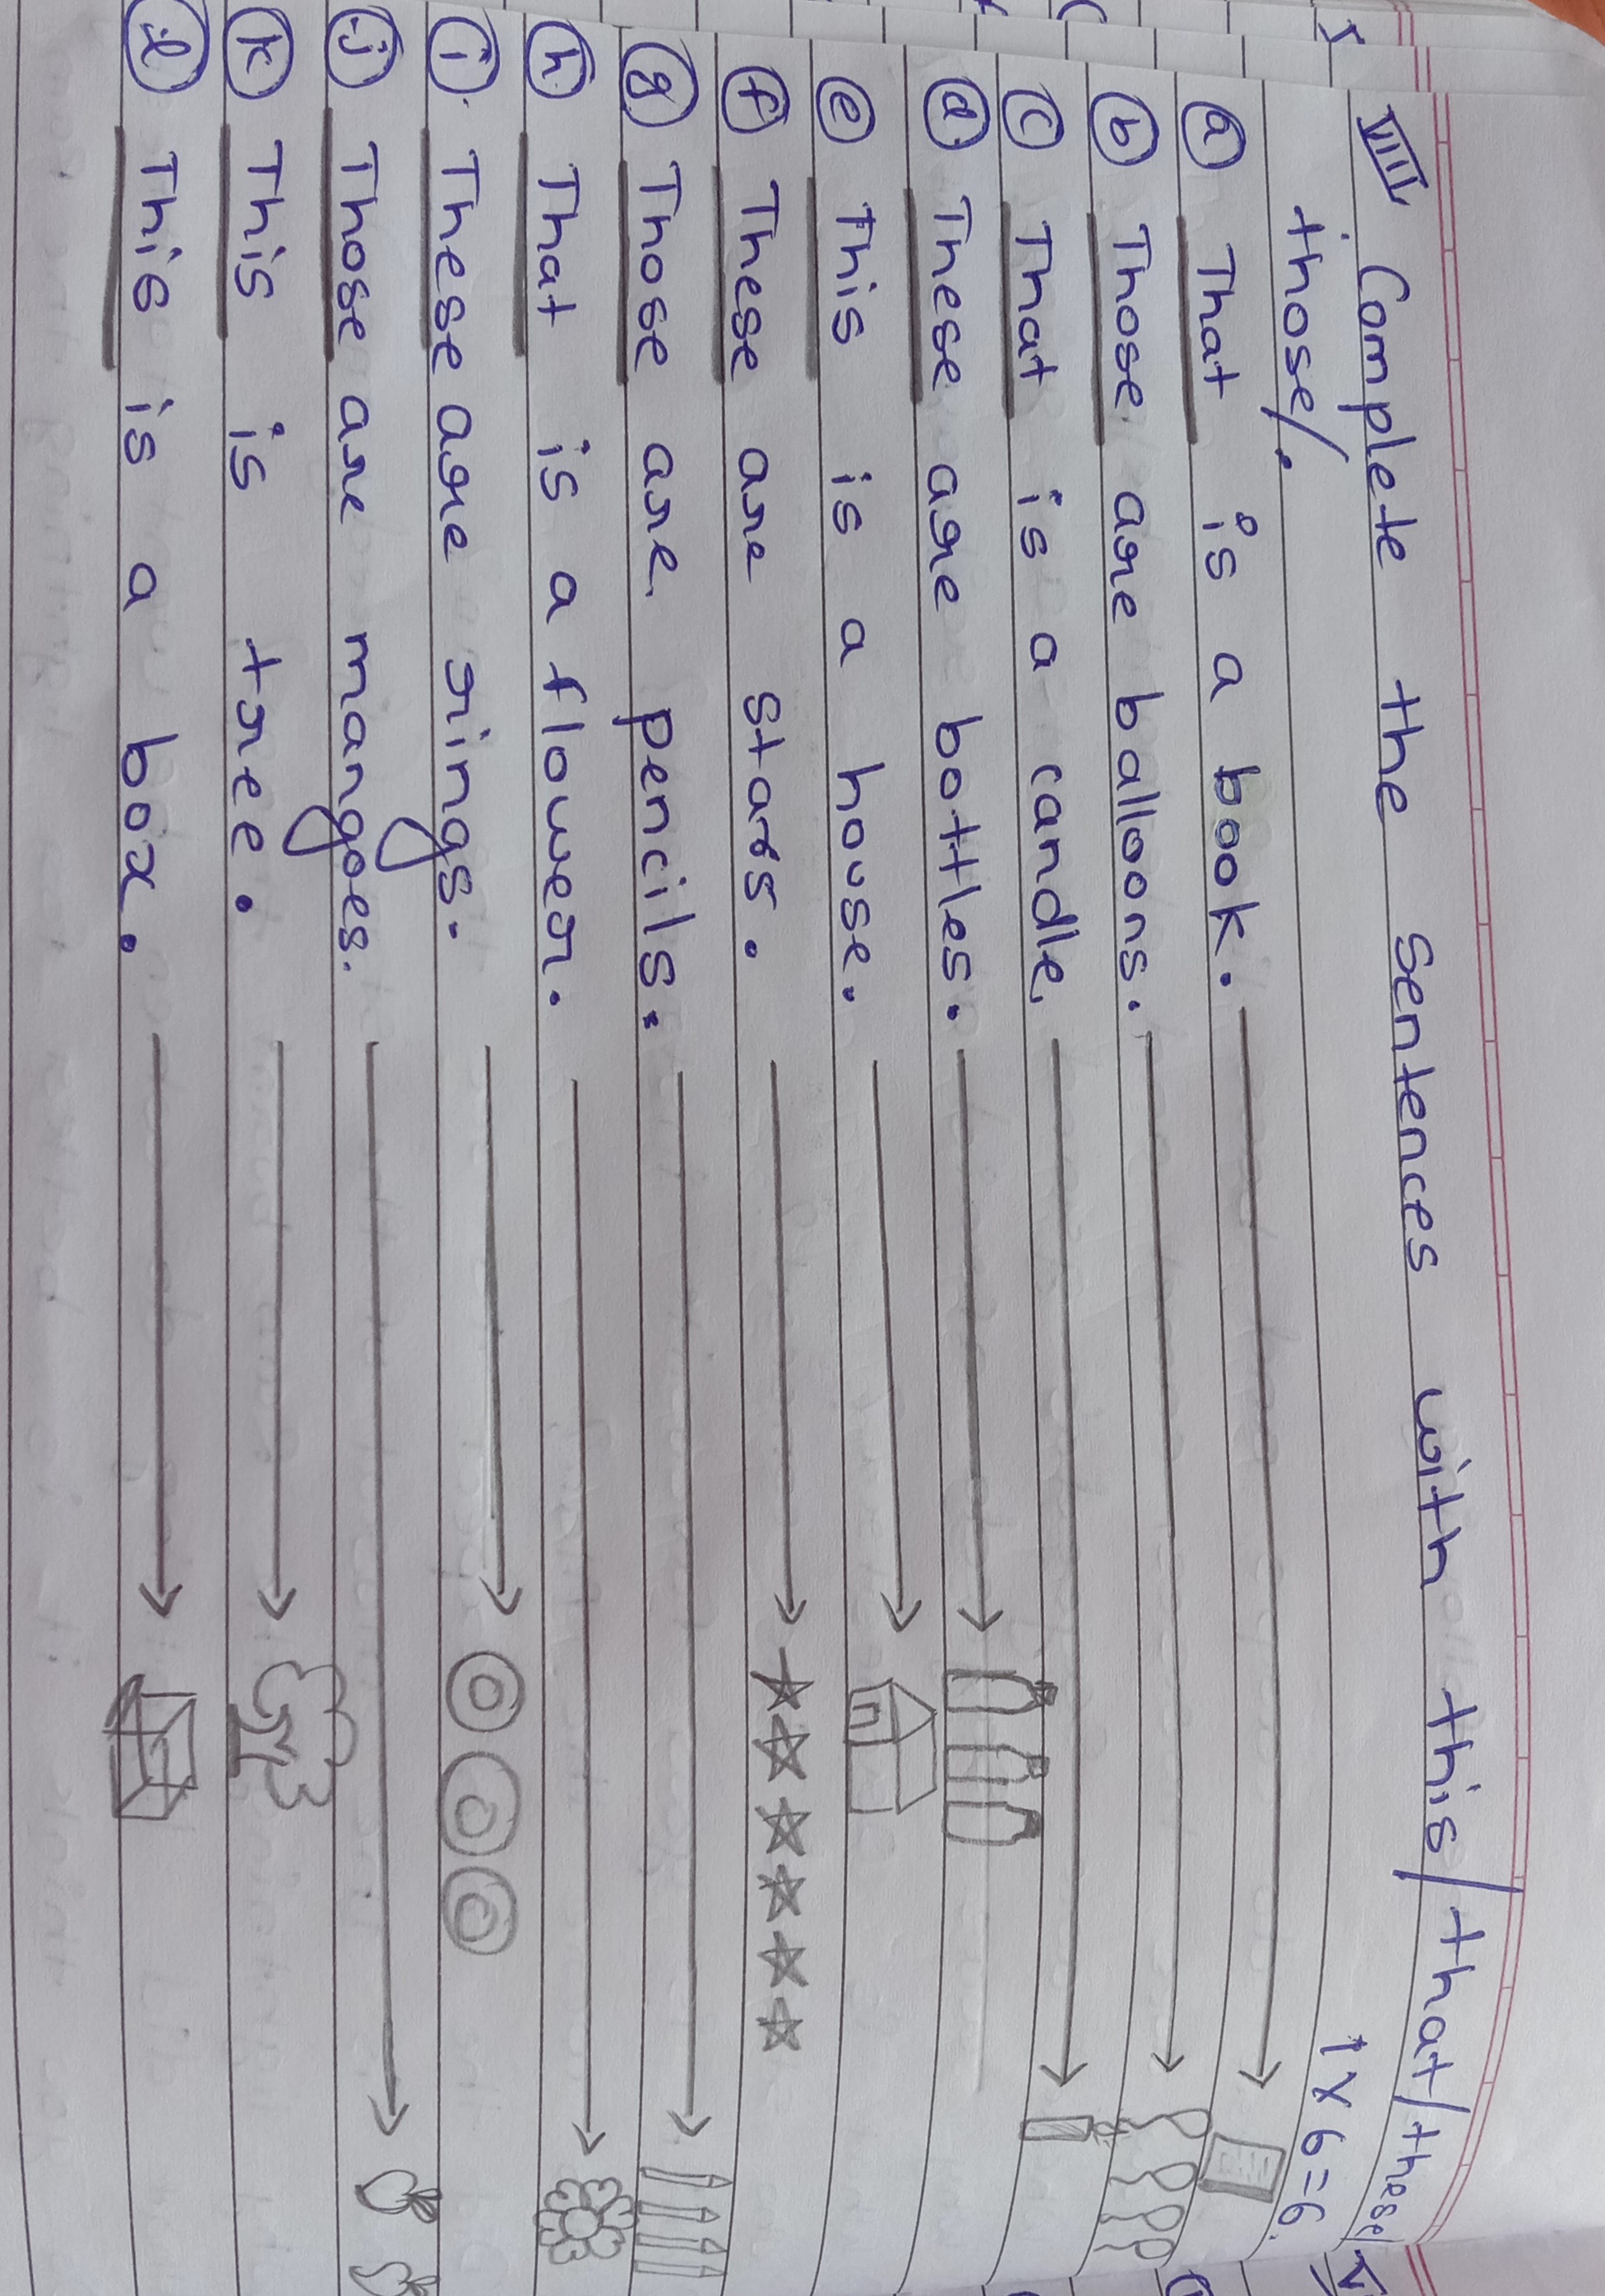 VIII Complete the sentences with this/that/these/
those/. 1 x 6 = 6.
a That is a book.
b Those are balloons.
c That is a candle.
d These are bottles.
e This is a house.
f These are stars.
g Those are pencils.
h That is a flower.
i These are rings.
j Those are mangoes.
k This is tree.
l This is a box.